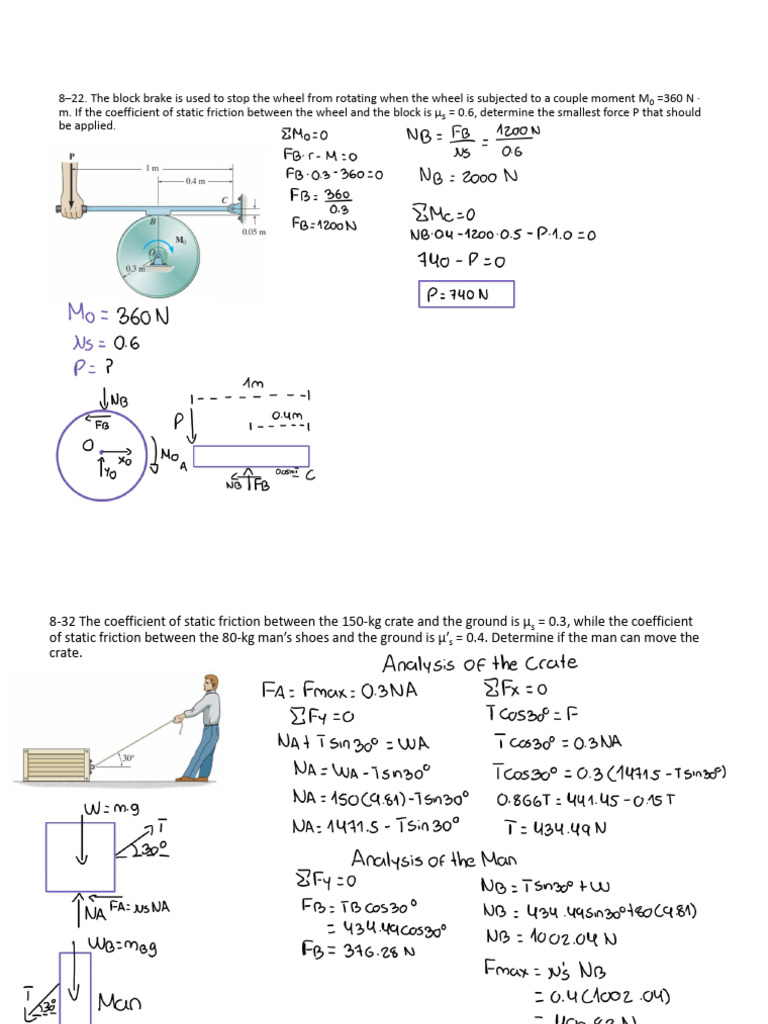 8–22. The block brake is used to stop the wheel from rotating when the wheel is subjected to a couple moment M₀ =360 N ·
m. If the coefficient of static friction between the wheel and the block is μₛ = 0.6, determine the smallest force P that should
be applied.
ΣMo=0
FB·r - M=0
FB·0.3-360=0
FB= 360/0.3
FB=1200N
NB= FB/Ns = 1200N/0.6
NB=2000 N
ΣMc=0
NB·04-1200·0.5-P·1.0=0
740-P=0
P=740N
P
1 m
0.4 m
C
B
0.05 m
M₀
O
0.3 m
Mo= 360N
Ns= 0.6
P= ?
NB
FB
O
xo
Yo
Mo
1m
P
0.4m
A
NB
FB
C
8-32 The coefficient of static friction between the 150-kg crate and the ground is μₛ = 0.3, while the coefficient
of static friction between the 80-kg man's shoes and the ground is μ'ₛ = 0.4. Determine if the man can move the
crate.
Analysis of the Crate
FA= Fmax= 0.3NA
ΣFy=0
NA+Tsin30°=WA
NA=WA-Tsn30°
NA=150(9.81)-Tsn30°
NA=1471.5-Tsin30°
ΣFx=0
Tcos30°=F
Tcos30°=0.3NA
Tcos30°=0.3(1471.5-Tsin30°)
0.866T=441.45-0.15T
T=434.49N
30°
W=m.g
T
30°
NA
FA=NsNA
Analysis of the Man
ΣFy=0
FB=TBcos30°
=434.49cos30°
FB=376.28N
NB=Tsn30°+W
NB=434.49sin30°+80(9.81)
NB=1002.04N
Fmax=N's NB
=0.4(1002.04)
WB=mBg
T
30°
Man